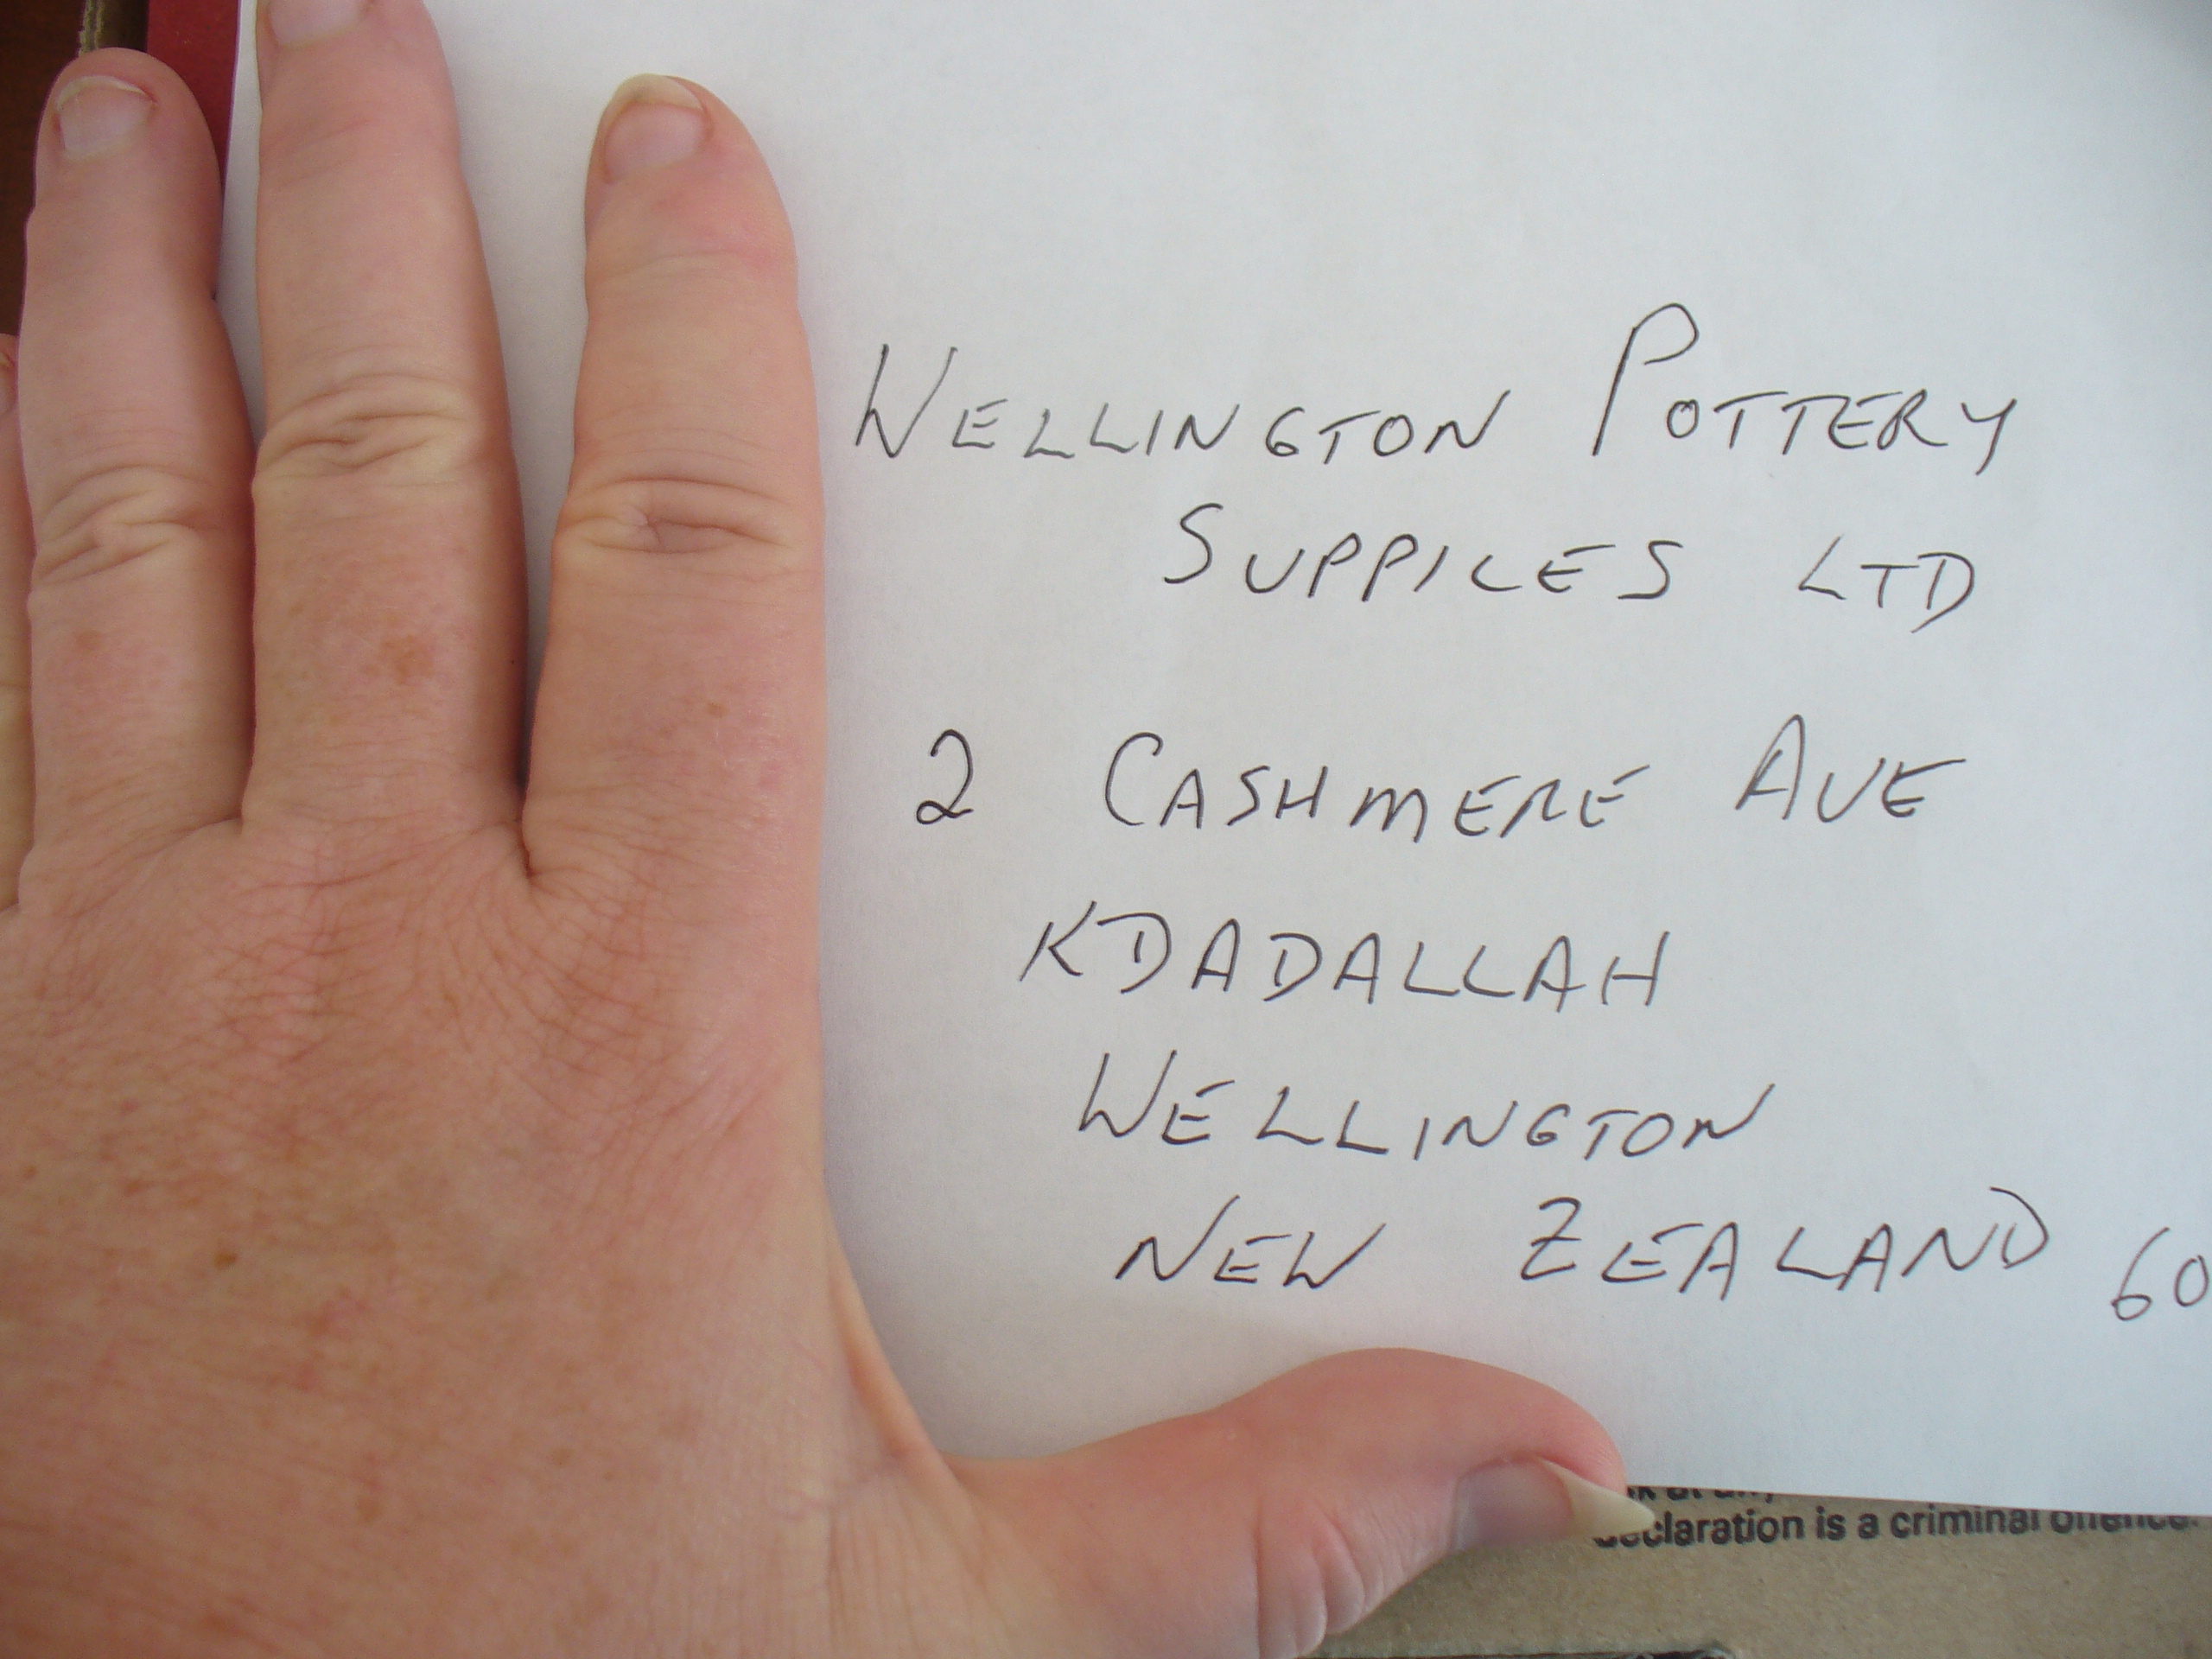 WELLINGTON POTTERY
SUPPILES LTD
2 CASHMERE AVE
KDADALLAH
WELLINGTON
NEW ZEALAND 60
declaration is a criminal offence